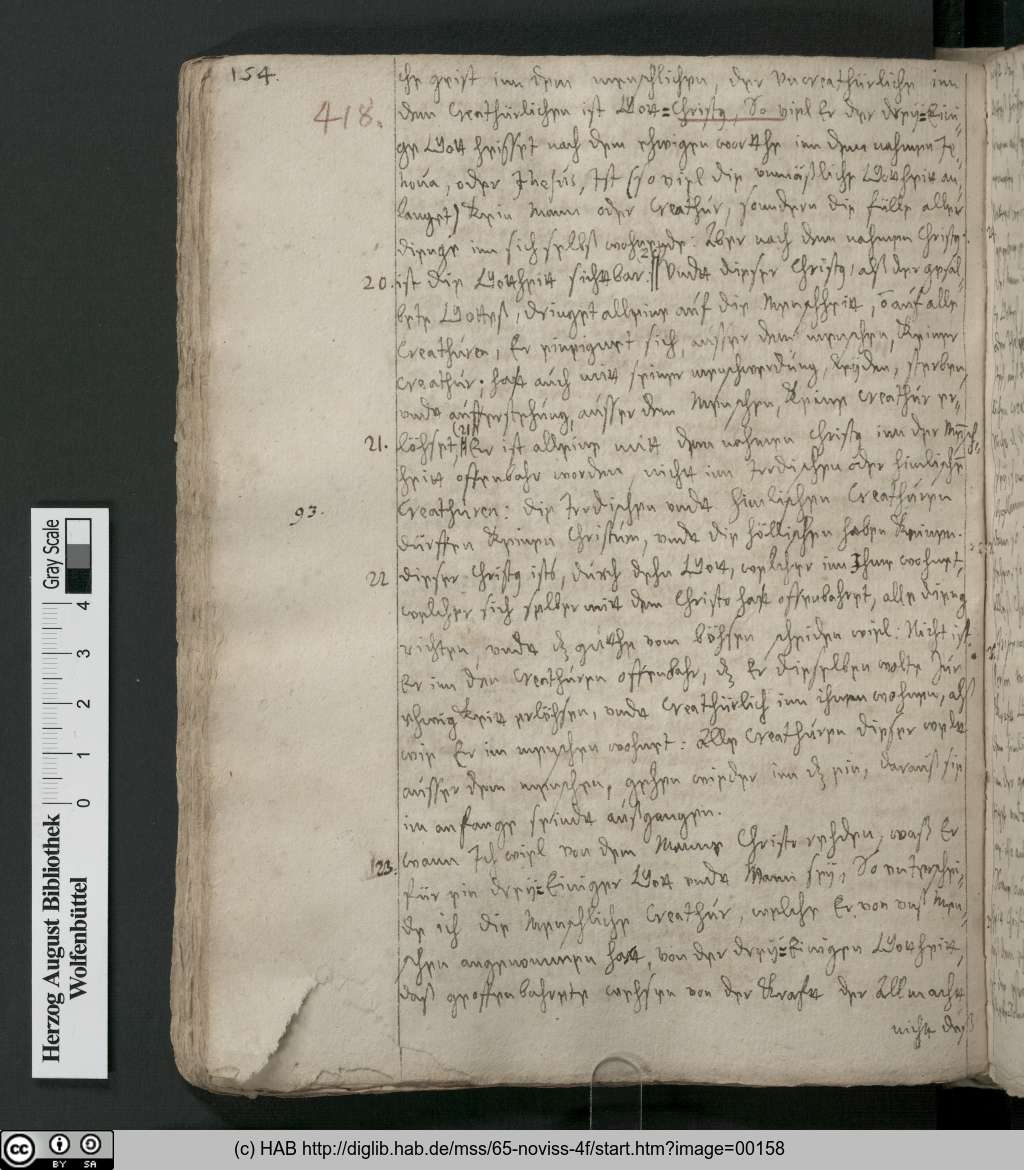 154.
418.
che geist inn dem menschlichen, der Vncreathürliche im
dem Creathürlichen ist Gott=Christus, So viel Er der drey=Eini-
ge Gott heisset nach dem ehwigen wortthe inn dem nahmen Je-
hova, oder Jhesus, Ist (so viel die vnmäßliche Gottheit an-
langet) Kein Mann oder Creathür, sonndern die fülle aller
dienge inn sich selbst wohnende: Aber nach dem nahmen Christus
20. ist die Gottheit sichtbar. Vndt dieser Christus, alß der gesal-
bete Gottes, dringet alleine auf die Menschheit, v auf alle
Creathüren, Er einiget sich, ausser dem menschen, Keiner
Creathür; hatt auch mitt seiner menschwerdung, Leyden, sterben,
vndt aufferstehung, ausser dem Menschen, Keine Creathür er-
21. löhset, Er ist alleine mitt dem nahmen Christus inn der Mensch-
heit offenbahr worden, nicht inn Irrdischen oder himlischen
93.
Creathüren: die Irrdischen vndt himlischen Creathüren
dürffen Keinen Christum, vndt die höllischen haben Keinen.
22 dieser Christus ists, durch dehn Gott, welcher inn Ihme wohnet,
welcher sich selber mitt dem Christo hatt offenbahret, alle dieng
richten, vndt dz guthe vom böhsen scheiden wiel: Nicht ist
Er inn den Creathüren offenbahr, dz Er dieselben wolte zur
ehwigKeit erlöhsen, vndt Creathürlich inn ihnen wohnen, alß
wie Er im menschen wohnet: Alle Creathüren dieser weldt
ausser dem menschen, gehen wieder inn dz ein, darauß sie
im anfange seindt außgangen.
23. Wann Ich wiel von dem Manne Christo rehden, waß Er
für ein drey=Einiger Gott vndt Mann sey, So unterschei-
de ich die Menschliche Creathür, welche Er von vnß Men-
schen angenommen hatt, von der drey=Einigen Gottheit,
daß geoffenbahrete wehsen von der Krafft der Allmacht
nicht daß
Herzog August Bibliothek
Wolfenbüttel
0 1 2 3 4
Gray Scale
cc BY SA
(c) HAB http://diglib.hab.de/mss/65-noviss-4f/start.htm?image=00158